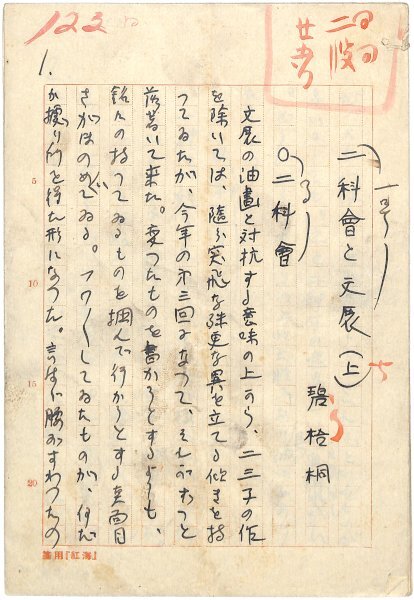 123
1.
二科會と文展（上）
一号
碧梧桐
○二科會
文展の油畫と対抗する意味の上から、二三子の作
を除いては、隨分突飛な殊更な異を立てる傾きを持
つてゐたが、今年の第三回になつて、それがずつと
落着いて来た。変つたものを書かうとするよりも、
銘々の持つてゐるものを掴んで行かうとする真面目
さがほのめいてゐる。フワ〳〵してゐたものが、何だ
か據り所を得た形になつた。言はゞ腰がすわつたの
5
10
15
20